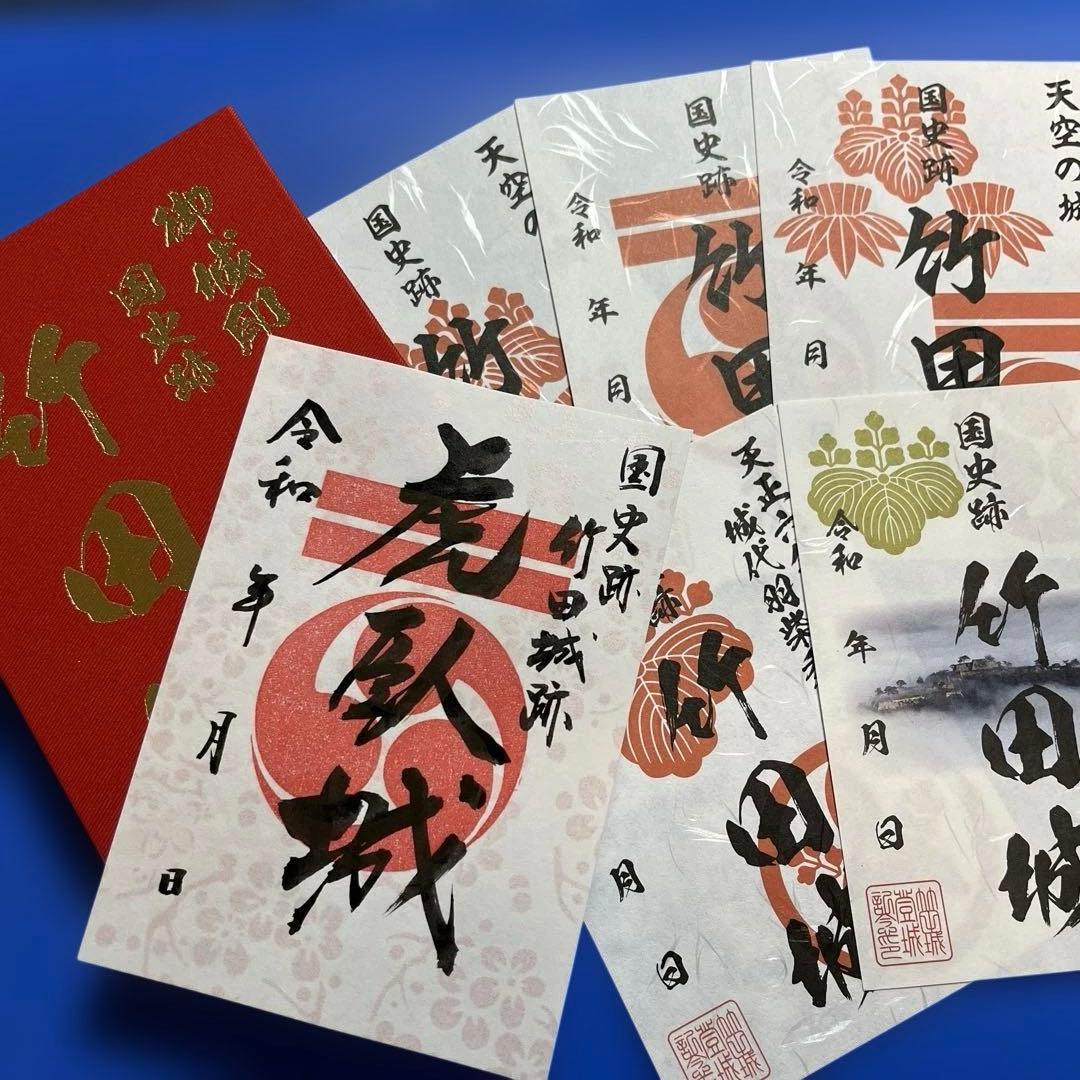 御城印
国史跡
竹田
天空の
国史跡
竹
令和
年
月
国史跡
竹田
令和
年
月
天空の城
国史跡
竹田
国史跡
竹田城跡
虎臥城
令和
年
月
日
天正六
城代羽柴秀
跡
竹田城
月
日
国史跡
竹田城
令和
年
月
日